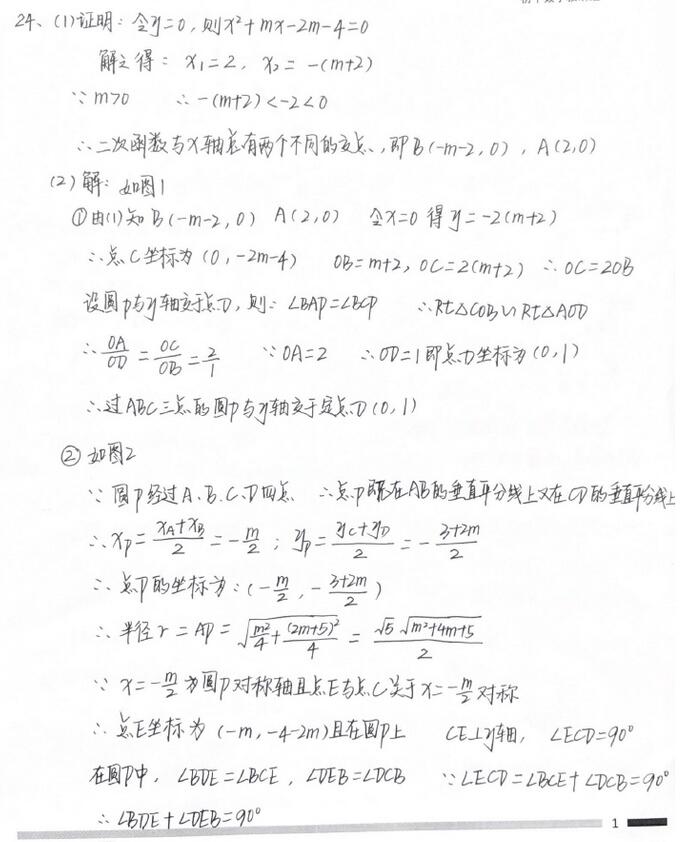 24、(1)证明：令y=0，则x²+mx-2m-4=0
解之得：x₁=2，x₂=-(m+2)
∵m>0 ∴-(m+2)<-2<0
∴二次函数与x轴总有两个不同的交点，即B(-m-2,0)，A(2,0)
(2)解：如图1
①由(1)知B(-m-2,0) A(2,0) 令x=0得y=-2(m+2)
∴点C坐标为(0,-2m-4) OB=m+2，OC=2(m+2) ∴OC=2OB
设圆P与y轴交于点D，则：∠BAD=∠BCD ∴Rt△COB∽Rt△AOD
∴OA/OD=OC/OB=2/1 ∵OA=2 ∴OD=1即点D坐标为(0,1)
∴过ABC三点的圆P与y轴交于定点D(0,1)
②如图2
∵圆P经过A、B、C、D四点 ∴点P既在AB的垂直平分线上又在CD的垂直平分线上
∴x_P=(x_A+x_B)/2=-m/2；y_P=(y_C+y_D)/2=-(3+2m)/2
∴点P的坐标为：(-m/2,-(3+2m)/2)
∴半径r=AP=√(m²/4+(2m+5)²/4)=√5√(m²+4m+5)/2
∵x=-m/2为圆P对称轴且点E与点C关于x=-m/2对称
∴点E坐标为(-m,-4-2m)且在圆P上 CE⊥y轴，∠ECD=90°
在圆P中，∠BDE=∠BCE，∠DEB=∠DCB ∵∠ECD=∠BCE+∠DCB=90°
∴∠BDE+∠DEB=90°
1